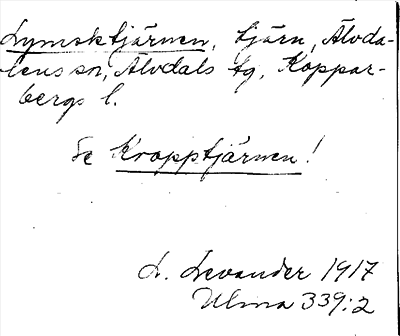 Lymsktjärnen, tjärn, Älvda-
lens sn, Älvdals tg, Koppar-
bergs l.
Se Kropptjärnen!
L. Levander 1917
Ulma 339:2